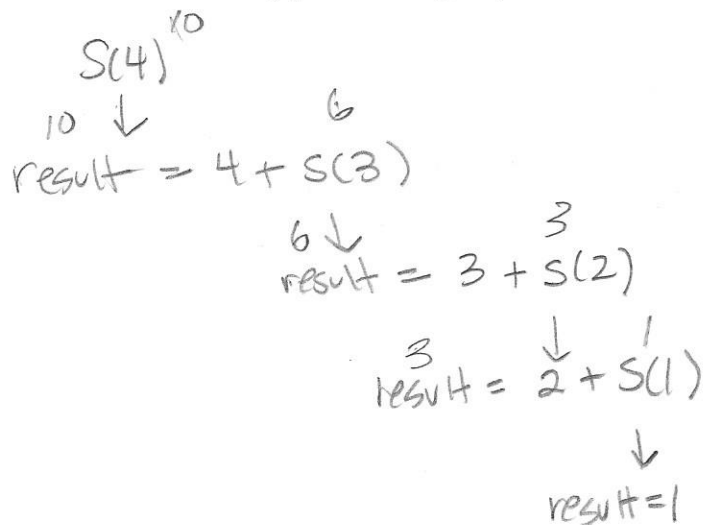 S(4) 10
10 ↓ 6
result = 4 + S(3)
6 ↓ 3
result = 3 + S(2)
3 ↓ 1
result = 2 + S(1)
↓
result = 1